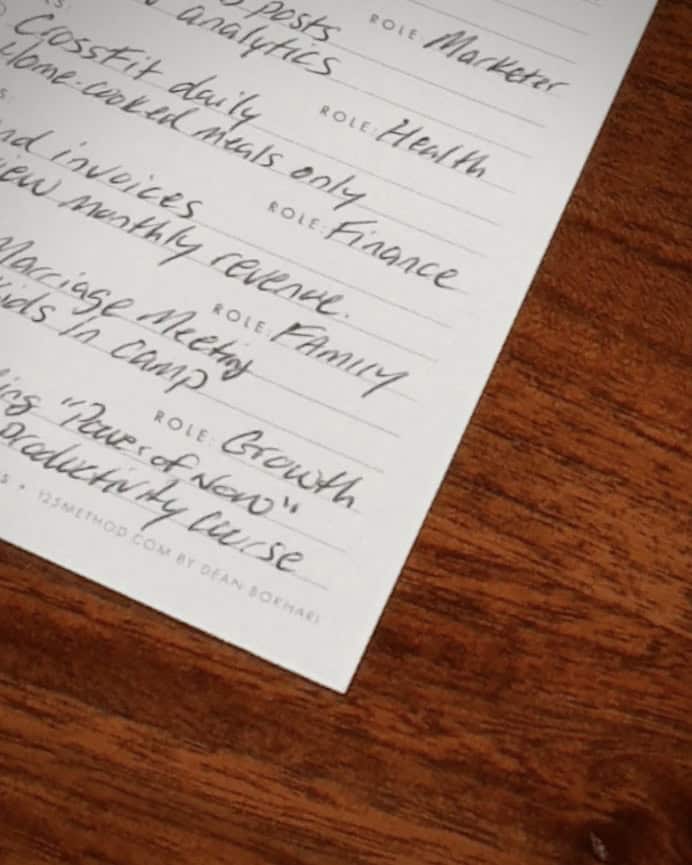 posts
analytics
ROLE: Marketer
CrossFit daily
Home-cooked meals only
ROLE: Health
invoices
monthly revenue.
ROLE: Finance
Marriage Meeting
in camp
ROLE: FAMILY
"Power of Now"
productivity course
ROLE: Growth
• 125METHOD.COM BY DEAN BOKHARI